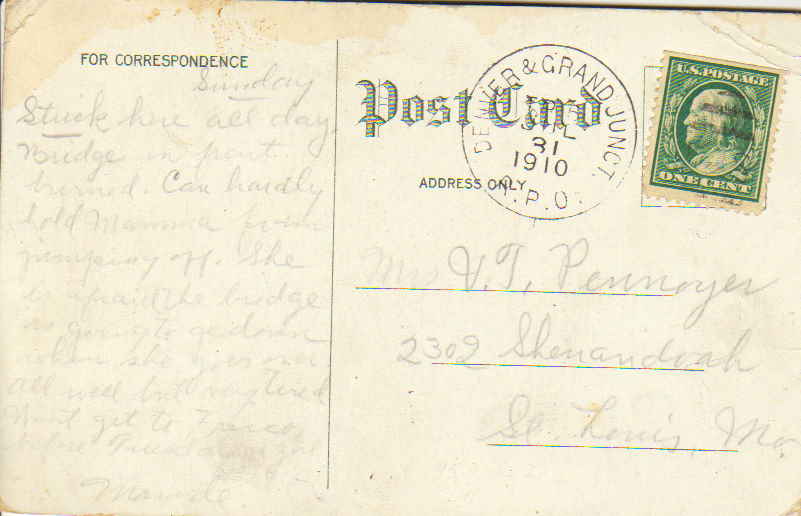 FOR CORRESPONDENCE
Sunday
Stuck here all day
Bridge in front
burned. Can hardly
hold Mamma from
jumping off. She
is afraid the bridge
is going to go down
when she goes over
All well but very tired
Wont get to Frisco
before Tuesday
Maude
Post Card
ADDRESS ONLY
DENVER & GRAND JUNCT.
JUL
31
1910
R.P.O.
U.S. POSTAGE
ONE CENT
Mrs V. T. Pennoyer
2302 Shenandoah
St. Louis, Mo.